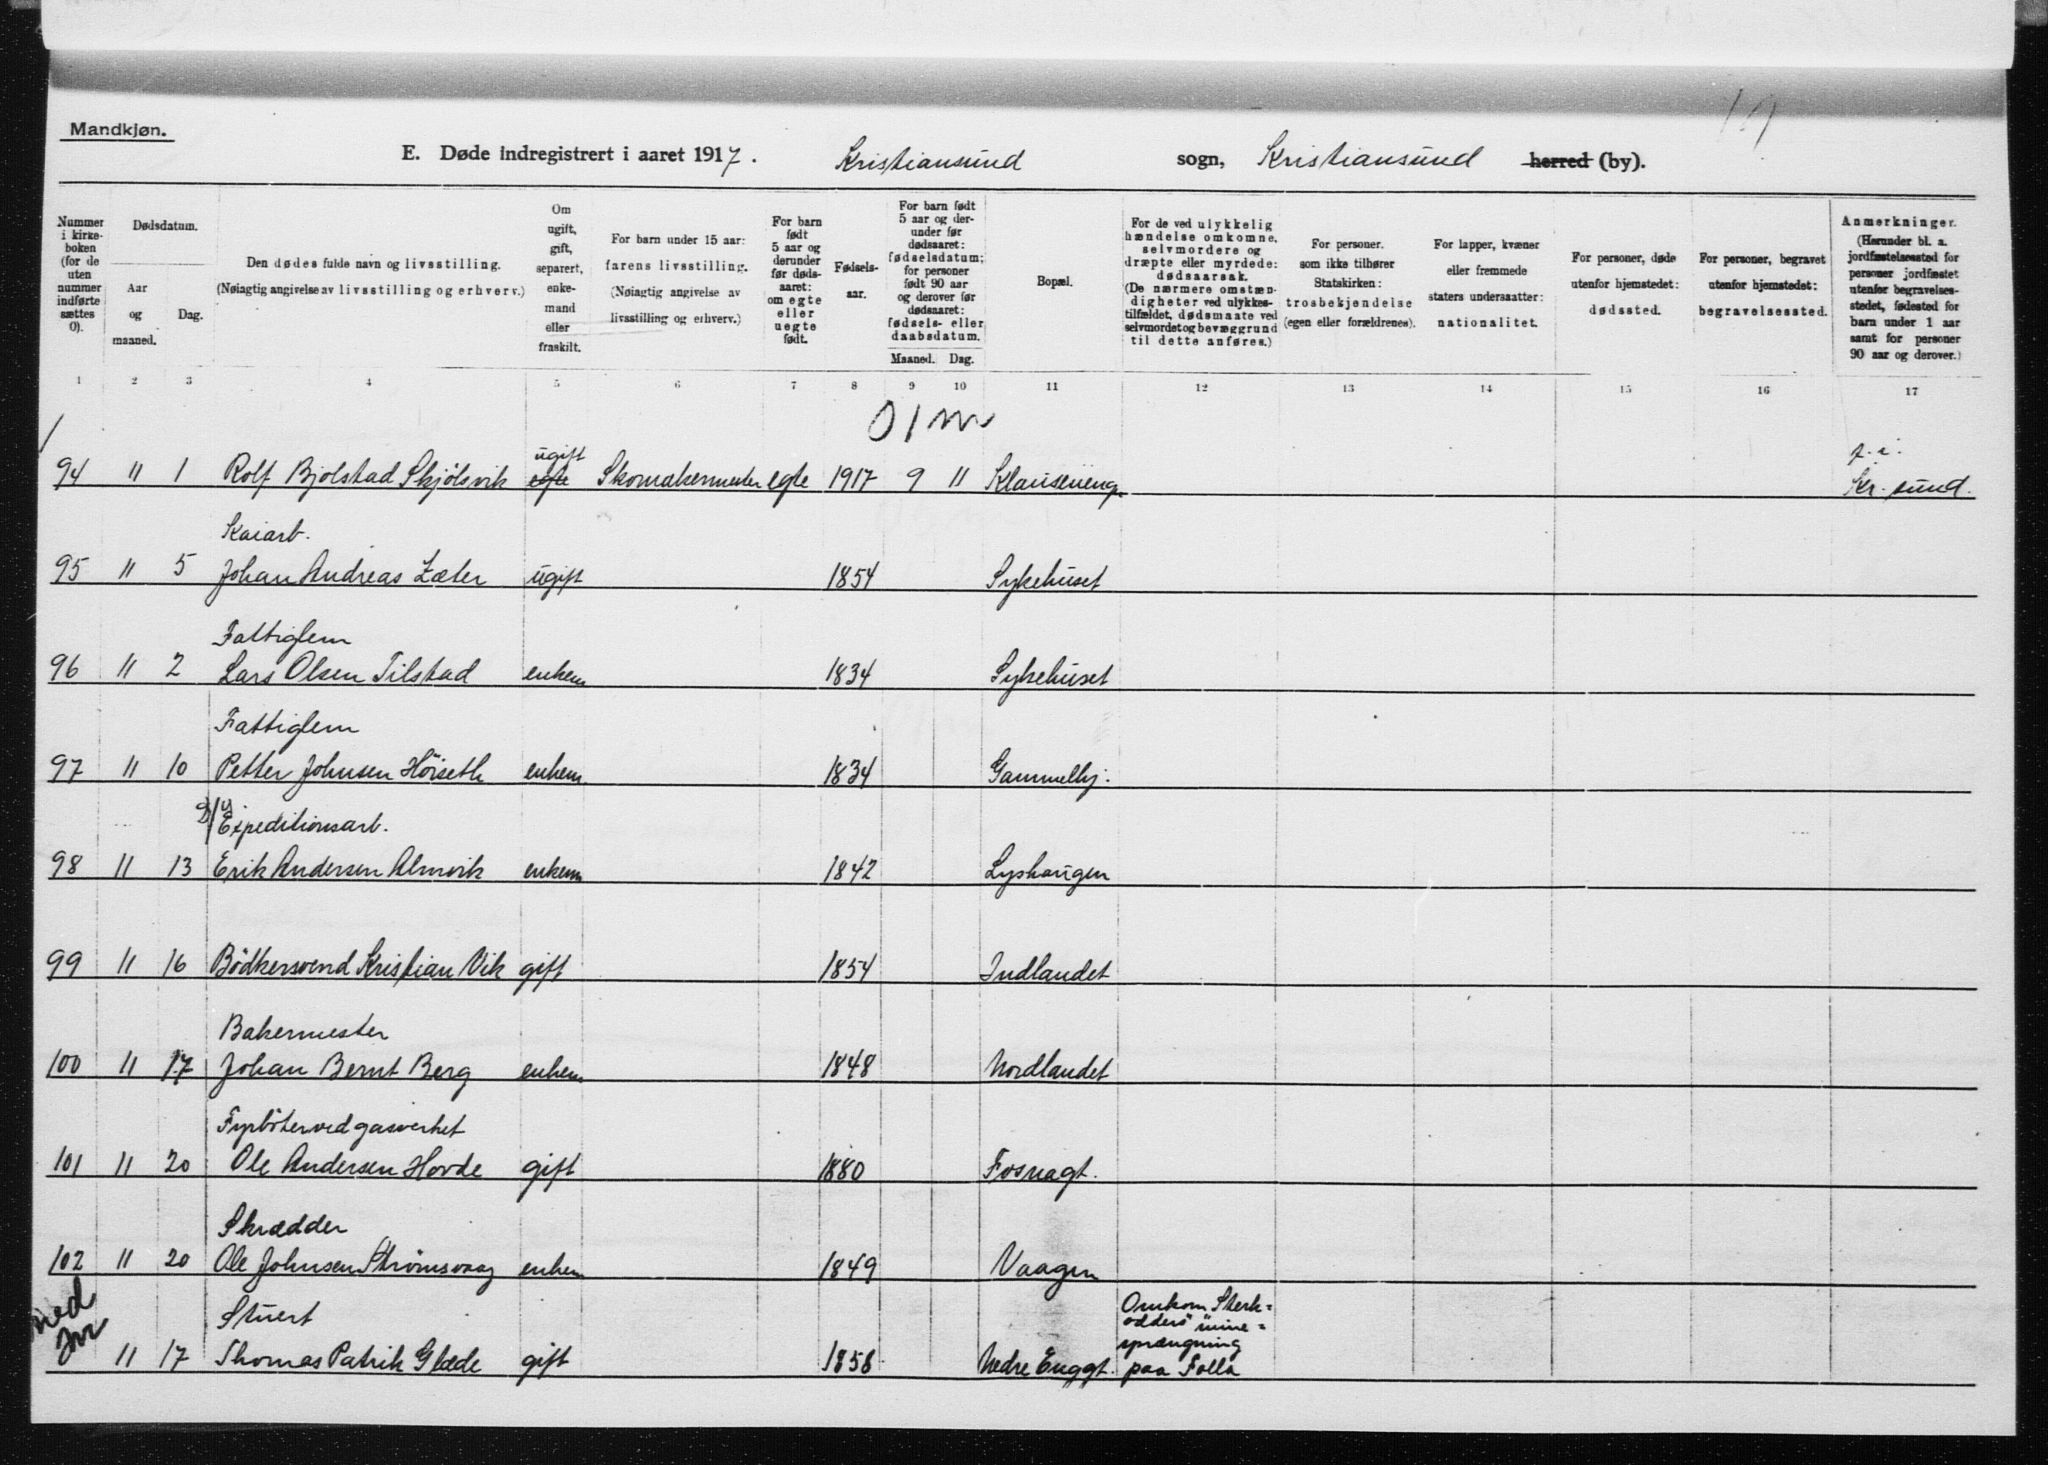 Mandkjøn.
E. Døde indregistrert i aaret 1917. Kristiansund sogn, Kristiansund herred (by).
Nummer i kirkeboken (for de uten nummer indførte sættes 0).
Dødsdatum.
Aar og maaned.
Dag.
Den dødes fulde navn og livsstilling.
(Nøiagtig angivelse av livsstilling og erhverv.)
Om ugift, gift, separert, enkemand eller fraskilt.
For barn under 15 aar: farens livsstilling.
(Nøiagtig angivelse av livsstilling og erhverv.)
For barn født 5 aar og derunder før dødsaaret: om egte eller uegte født.
Fødselsaar.
For barn født 5 aar og derunder før dødsaaret: fødselsdatum; for personer født 90 aar og derover før dødsaaret: fødsels- eller daabsdatum.
Maaned. Dag.
Bopæl.
For de ved ulykkelig hændelse omkomne, selvmordere og dræpte eller myrdede: dødsaarsak.
(De nærmere omstændigheter ved ulykkestilfældet, dødsmaate ved selvmordet og bevæggrund til dette anføres.)
For personer, som ikke tilhører Statskirken: trosbekjendelse (egen eller forældrenes).
For lapper, kvæner eller fremmede staters undersaatter: nationalitet.
For personer, døde utenfor hjemstedet: dødssted.
For personer, begravet utenfor hjemstedet: begravelsessted.
Anmerkninger.
(Herunder bl. a. jordfæstelsessted for personer jordfæstet utenfor begravelsesstedet, fødested for barn under 1 aar samt for personer 90 aar og derover.)
1 2 3 4 5 6 7 8 9 10 11 12 13 14 15 16 17
ugift
94 11 1 Rolf Bjolstad Skjølsvik egte Skomakermester egte 1917 9 11 Klauseneng. Kr.sund.
Kaiarb.
95 11 5 Johan Andreas Sæter ugift 1854 Sykehuset
Fattiglem
96 11 2 Lars Olsen Tilstad enkem 1834 Sykehuset
Fattiglem
97 11 10 Petter Johnsen Höiseth enkem 1834 Gammelbj.
Expeditionsarb.
98 11 13 Erik Andersen Almvik enkem 1842 Lyshaugen
99 11 16 Bödkersvend Kristian Vik gift 1854 Indlandet
Bakermester
100 11 17 Johan Bernt Berg enkem 1848 Nordlandet
Fyrböter ved gasverket
101 11 20 Ole Andersen Hovde gift 1880 Fosnagt.
Skrædder
102 11 20 Ole Johnsen Strømsvaag enkem 1849 Vaagen
Stuert
11 17 Thomas Patrik Glæde gift 1858 Nedre Enggt.
Omkom "Sterk=
odders" mine=
sprængning
paa Folla